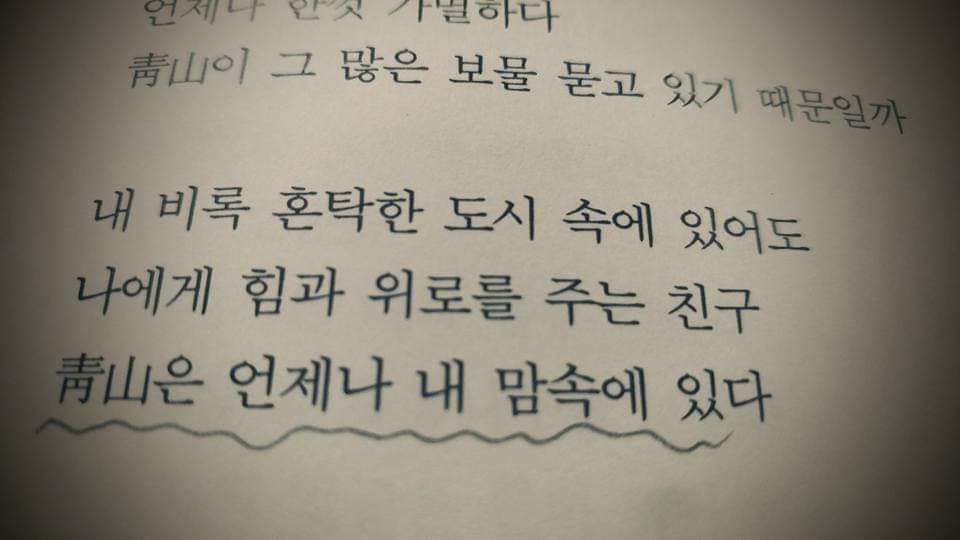 언제나 한껏 가멸하다
靑山이 그 많은 보물 묻고 있기 때문일까
내 비록 혼탁한 도시 속에 있어도
나에게 힘과 위로를 주는 친구
靑山은 언제나 내 맘속에 있다